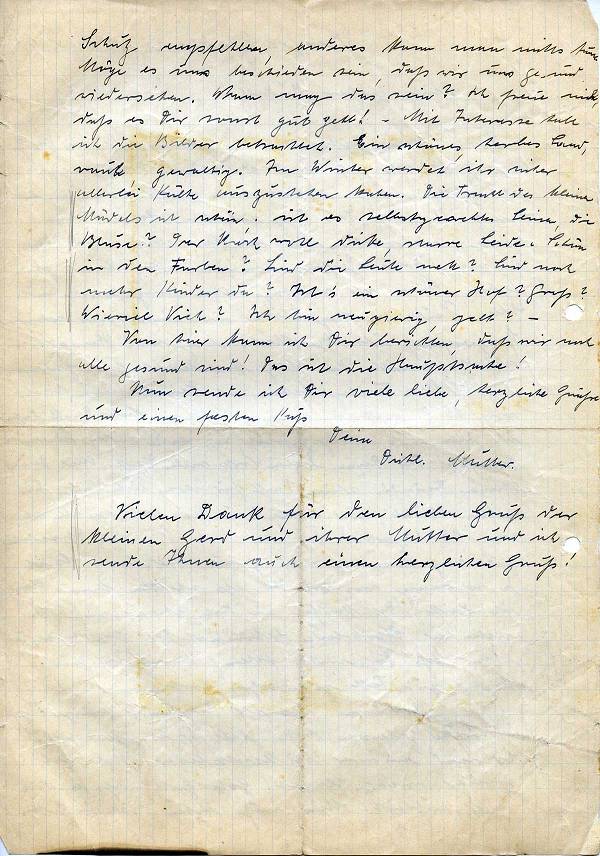 Schutz empfehlen, anderes kann man nichts tun.
Möge es uns beschieden sein, daß wir uns gesund
wiedersehen. Wann mag das sein? Ich freue mich,
daß es Dir sonst gut geht! – Mit Interesse hab
ich die Bilder betrachtet. Ein schönes, herbes Land,
rauh, gewaltig. Im Winter werdet ihr unter
allerlei Kälte auszustehen haben. Die Tracht des kleinen
Mädels ist schön. ist es selbstgemachtes Leinen, die
Bluse? Der Rock wohl dicke, starre Seide. Schön
in den Farben? Sind die Leute nett? Sind noch
mehr Kinder da? Ist's ein schöner Hof? Groß?
Wieviel Vieh? Ich bin neugierig, gelt? –
Von hier kann ich Dir berichten, daß wir noch
alle gesund sind! Das ist die Hauptsache!
Nun sende ich Dir viele liebe, herzliche Grüße
und einen festen Kuß
Deine
Mutter.
Vielen Dank für den lieben Gruß der
kleinen Gerd und ihrer Mutter und ich
sende Ihnen auch einen herzlichen Gruß!